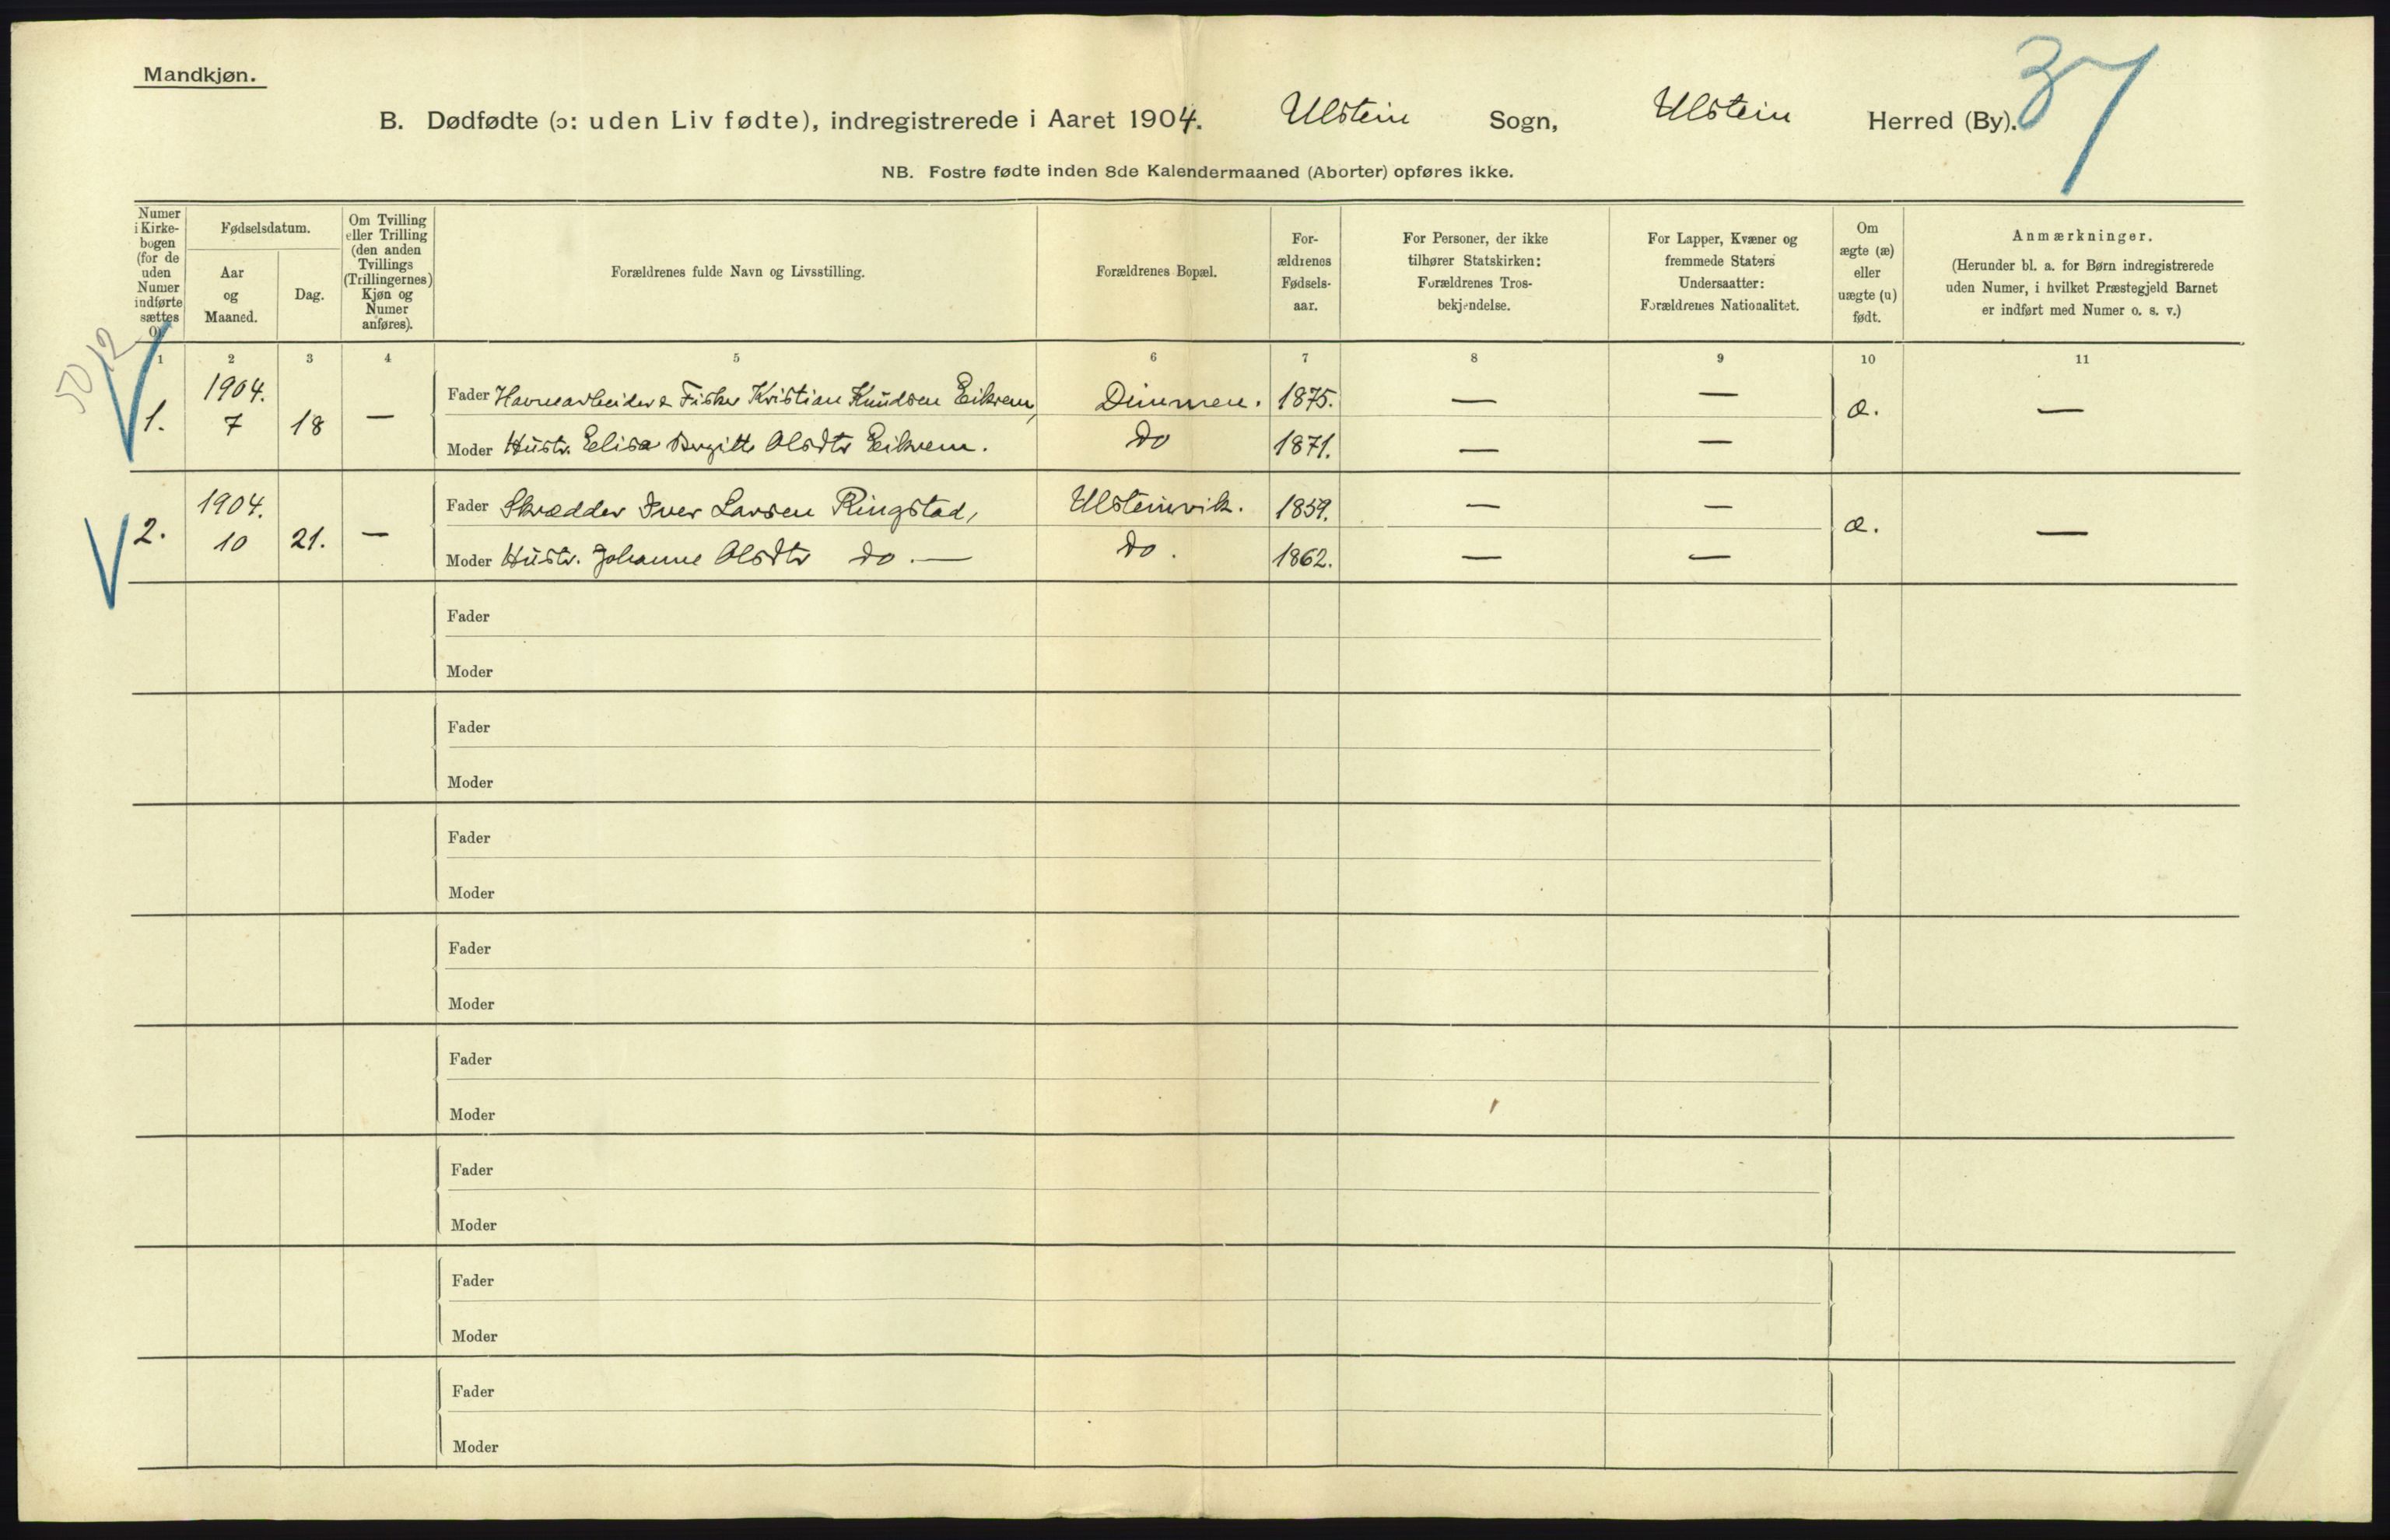 Mandkjøn.
37
B. Dødfødte (ɔ: uden Liv fødte), indregistrerede i Aaret 1904. Ulstein Sogn, Ulstein Herred (By).
NB. Fostre fødte inden 8de Kalendermaaned (Aborter) opføres ikke.
Numer
i Kirke-
bogen
(for de
uden
Numer
indførte
sættes
0).
Fødselsdatum.
Aar
og
Maaned.
Dag.
Om Tvilling
eller Trilling
(den anden
Tvillings
(Trillingernes)
Kjøn og
Numer
anføres).
Forældrenes fulde Navn og Livsstilling.
Forældrenes Bopæl.
For-
ældrenes
Fødsels-
aar.
For Personer, der ikke
tilhører Statskirken:
Forældrenes Tros-
bekjendelse.
For Lapper, Kvæner og
fremmede Staters
Undersaatter:
Forældrenes Nationalitet.
Om
ægte (æ)
eller
uægte (u)
født.
Anmærkninger.
(Herunder bl. a. for Børn indregistrerede
uden Numer, i hvilket Præstegjeld Barnet
er indført med Numer o. s. v.)
1 2 3 4 5 6 7 8 9 10 11
5012
1. 1904. 7 18 —
Fader Havnearbeider & Fisker Kristian Knudsen Eikrem, Dimmen. 1875. — — æ. —
Moder Hustr. Elisa Birgitte Olsdtr Eikrem. do 1871. — —
2. 1904. 10 21. —
Fader Skrædder Iver Larsen Ringstad, Ulsteinvik. 1859. — — æ. —
Moder Hustr. Johanne Olsdtr do. — do. 1862. — —
Fader
Moder
Fader
Moder
Fader
Moder
Fader
Moder
Fader
Moder
Fader
Moder
Fader
Moder
Fader
Moder